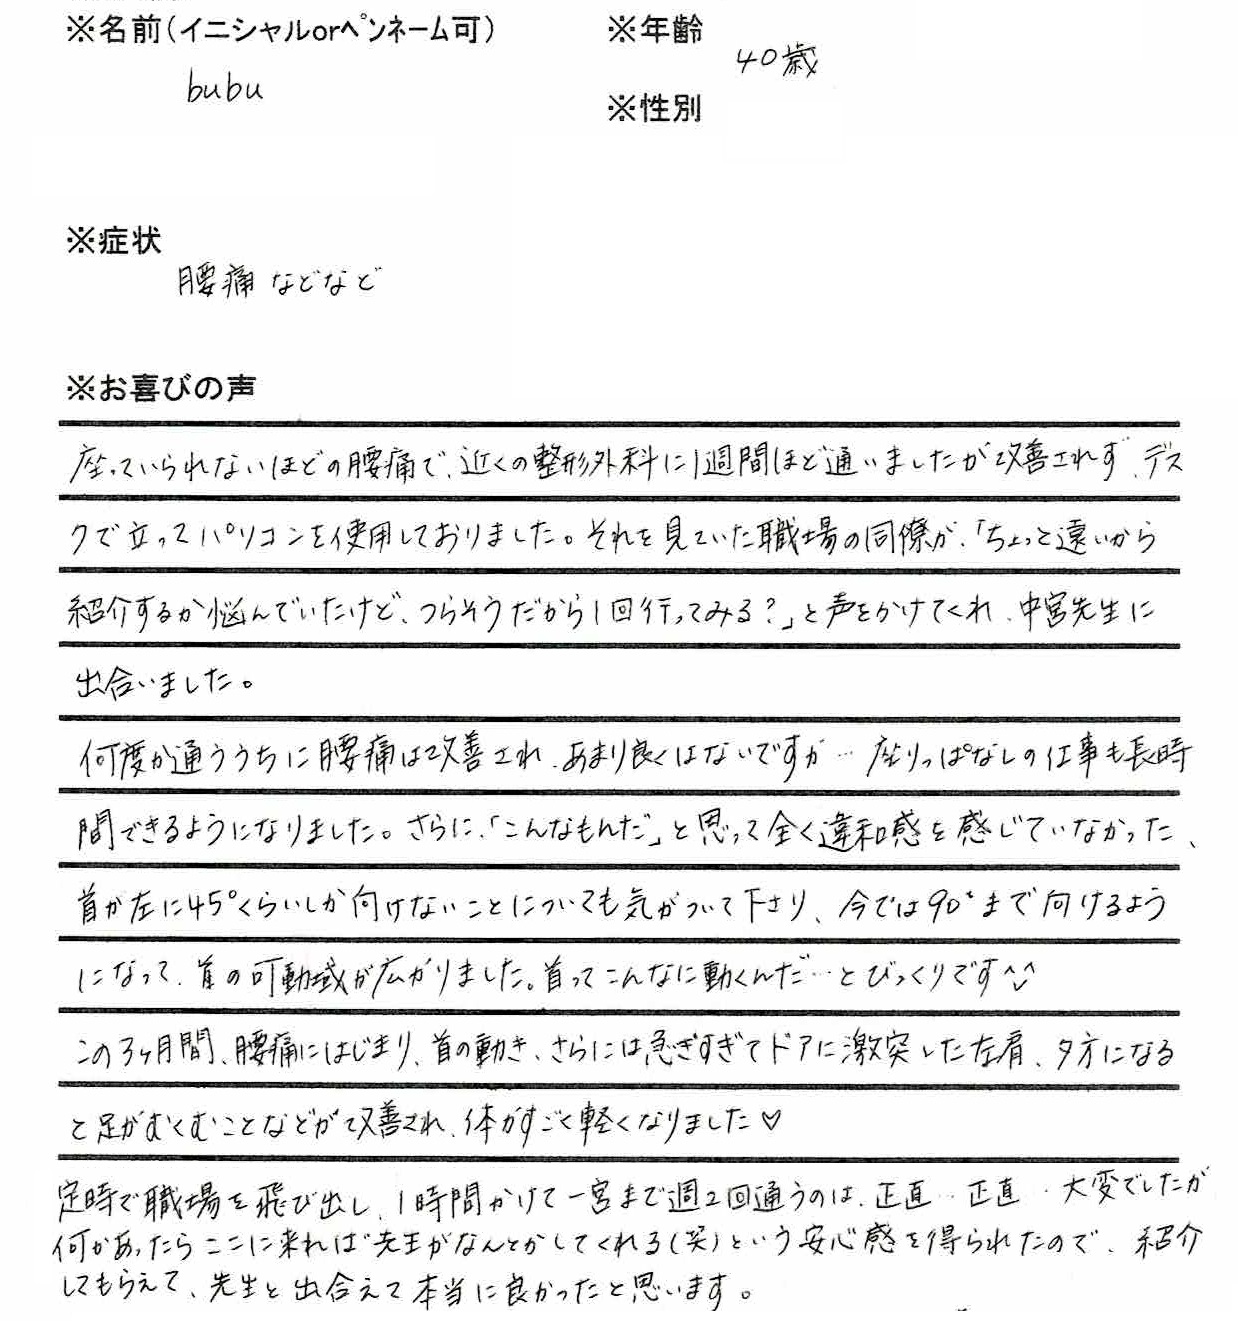 ※名前(イニシャルorペンネーム可)
bubu
※年齢
40歳
※性別
※症状
腰痛 などなど
※お喜びの声
座っていられないほどの腰痛で、近くの整形外科に1週間ほど通いましたが改善されず、デス
クで立ってパソコンを使用しておりました。それを見ていた職場の同僚が、「ちょっと遠いから
紹介するか悩んでいたけど、つらそうだから1回行ってみる?」と声をかけてくれ、中宮先生に
出合いました。
何度か通ううちに腰痛は改善され、あまり良くはないですが…座りっぱなしの仕事も長時
間できるようになりました。さらに、「こんなもんだ」と思って全く違和感を感じていなかった、
首が左に45°くらいしか向けないことについても気がついて下さり、今では90°まで向けるよう
になって、首の可動域が広がりました。首ってこんなに動くんだ…とびっくりです^^
この3ヶ月間、腰痛にはじまり、首の動き、さらには急ぎすぎてドアに激突した左肩、夕方になる
と足がむくむことなどが改善され、体がすごく軽くなりました♡
定時で職場を飛び出し、1時間かけて一宮まで週2回通うのは、正直…正直…大変でしたが
何かあったらここに来れば先生がなんとかしてくれる(笑)という安心感を得られたので、紹介
してもらえて、先生と出合えて本当に良かったと思います。